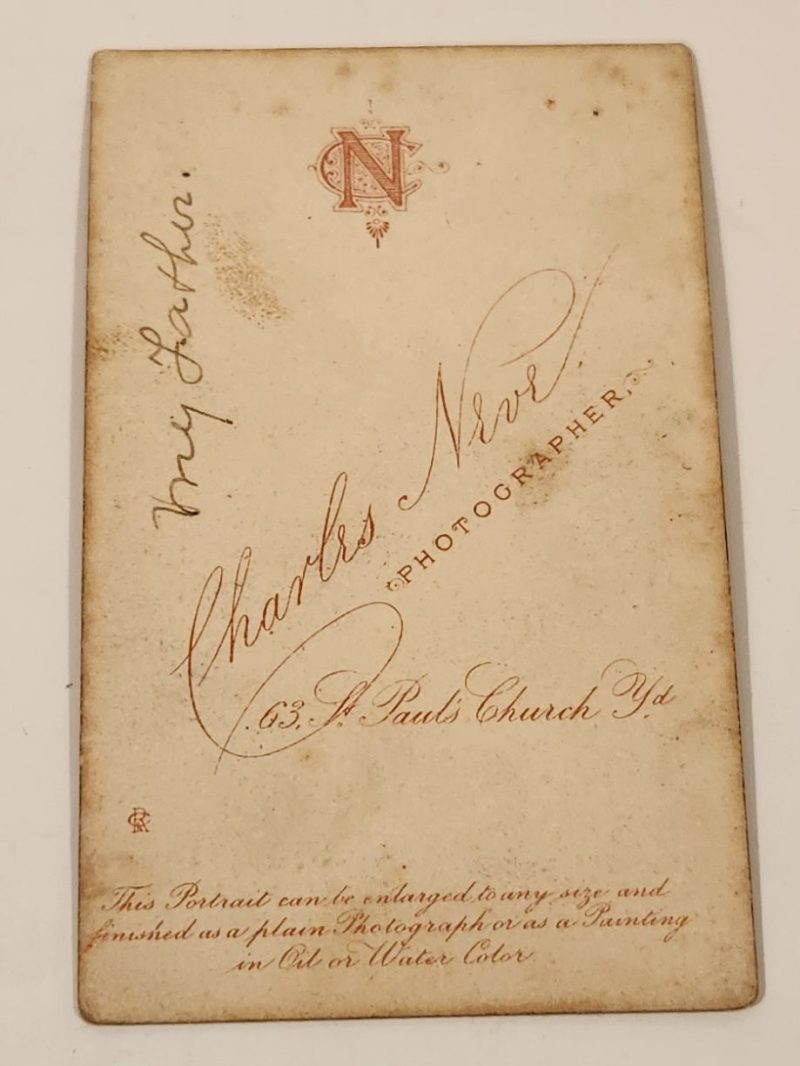 CN
My Father.
Charles Neve.
PHOTOGRAPHER,
63. St. Paul's Church Yd.
This Portrait can be enlarged to any size and
finished as a plain Photograph or as a Painting
in Oil or Water Color